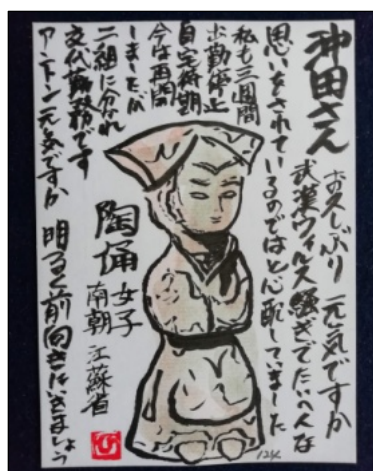 沖田さん
お久しぶり 元気ですか
武漢ウィルス騒ぎでたいへんな
思いをされているのではと心配していました
私も三週間
出勤停止
自宅待期
今は再開
しましたが
二組に分かれ
交代勤務です
アントン元気ですか 明るく前向きにいきましょう
陶俑 女子
南朝 江蘇省